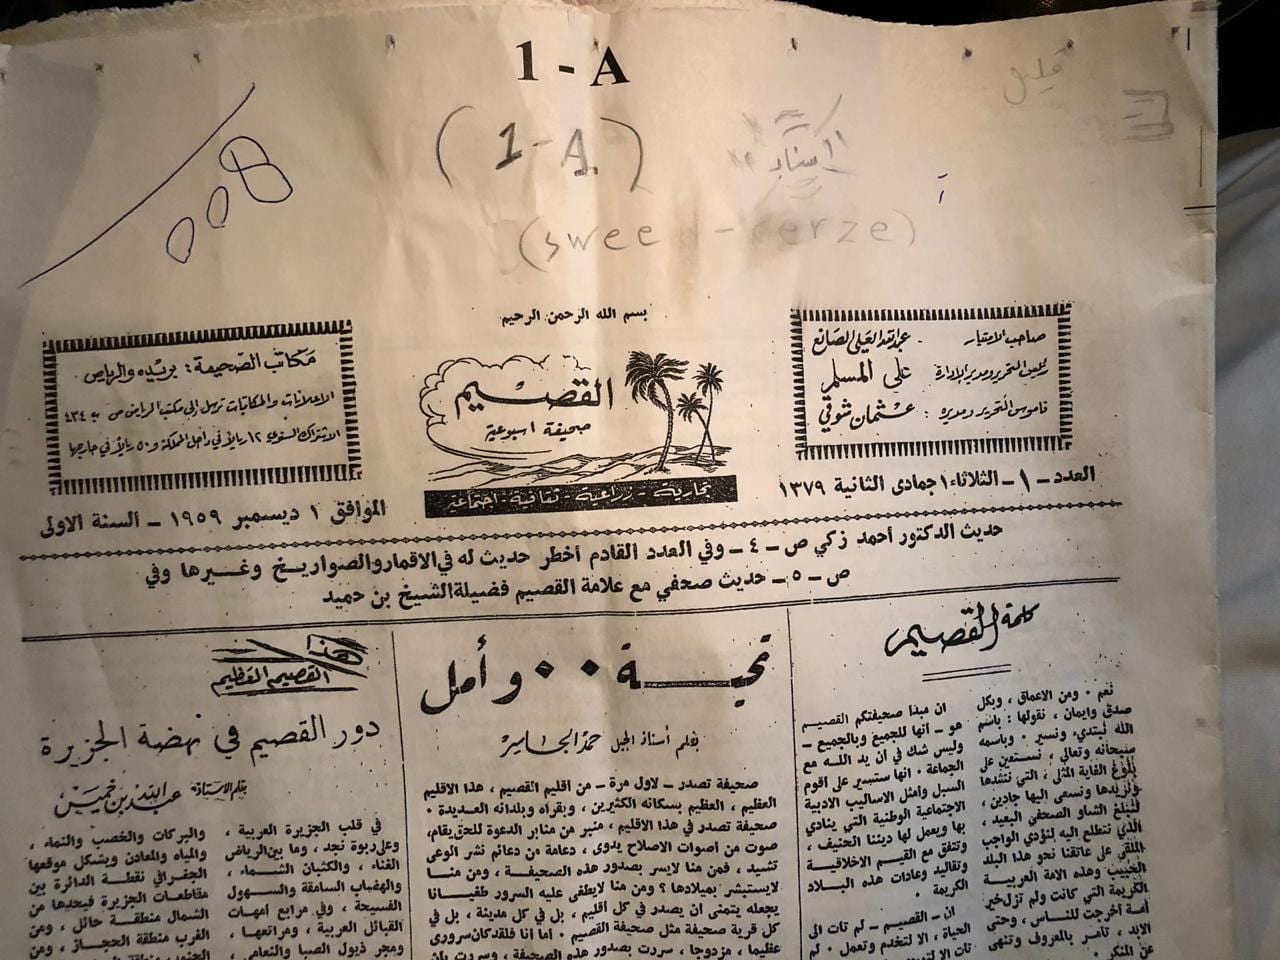 1 - A
(1-A)
008
بسم الله الرحمن الرحيم
صاحب الامتياز : عبدالله العلي الصانع
رئيس التحرير ومدير الإدارة : علي المسلم
قاموس التحرير ومديره : عثمان شوقي
القصيم
صحيفة اسبوعية
تجارية - زراعية - ثقافية - اجتماعية
مكاتب الصحيفة : بريده والرياض
الاعلانات والمكاتبات ترسل الى مكتب الرياض ص ب ٤٣٤
الاشتراك السنوي ١٢ ريالاً في داخل المملكة و ٥٠ ريالاً في خارجها
العدد -١- الثلاثاء ١ جمادى الثانية ١٣٧٩
الموافق ١ ديسمبر ١٩٥٩ - السنة الاولى
حديث الدكتور أحمد زكي ص -٤- وفي العدد القادم أخطر حديث له في الاقمار والصواريخ وغيرها وفي
ص -٥- حديث صحفي مع علامة القصيم فضيلة الشيخ بن حميد
كلمة القصيم
نعم . ومن الاعماق ، وبكل
صدق وايمان ، نقولها : باسم
الله نبتديء ونسير . وباسمه
سبحانه وتعالى ، نستعين على
بلوغ الغاية المثلى ، التي ننشدها
ونريدها ونسعى اليها جادين ،
لنبلغ الشاو الصحفي البعيد ،
الذي نتطلع اليه لنؤدي الواجب
الملقى على عاتقنا نحو هذا البلد
الحبيب وهذه الامة العربية
الكريمة التي كانت ولم تزل خير
أمة اخرجت للناس ، وحتى
الابد ، تأمر بالمعروف وتنهى
عن المنكر .
ان مبدا صحيفتكم القصيم
هو - انها للجميع وبالجميع -
وليس شك في ان يد الله مع
الجماعة . انها ستسير على أقوم
السبل وأمثل الاساليب الادبية
الاجتماعية الوطنية التي ينادي
بها ويعمل لها ديننا الحنيف ،
وتتفق مع القيم الاخلاقية
وتقاليد وعادات هذه البلاد
الكريمة .
ان - القصيم - لم تات الى
الحياة ، الا لتخدم وتعمل . لم
تحيـــة ٠٠ وأمل
بقلم أستاذ الجيل حمد الجاسر
صحيفة تصدر - لاول مرة - من أقليم القصيم ، هذا الاقليم
العظيم ، العظيم بسكانه الكثيرين ، وبقراه وبلدانه العديدة .
صحيفة تصدر في هذا الاقليم ، منبر من منابر الدعوة للحق يقام ،
صوت من أصوات الاصلاح يدوى ، دعامة من دعائم نشر الوعى
تشيد ، فمن منا لايسر بصدور هذه الصحيفة ، ومن منا
لايستبشر بميلادها ؟ ومن منا لايطفى عليه السرور طفيانا
يجعله يتمنى ان يصدر في كل أقليم ، بل في كل مدينة ، بل في
كل قرية صحيفة مثل صحيفة القصيم . أما أنا فلقد كان سرورى
عظيما ، مزدوجا ، سررت بصدور هذه الصحيفة ، وسررت بأن
هذا
القصيم العظيم
دور القصيم في نهضة الجزيرة
بقلم الاستاذ عبدالله بن خميس
في قلب الجزيرة العربية ،
وعلى ربوة نجد ، وما بين الرياض
الغناء ، والكثبان الشماء ،
والهضاب السامقة والسهول
الفسيحة ، وفي مرابع أمهات
القبائل العربية ، ومراتعها ،
ومجر ذيول الصبا والنعامى ،
والبركات والخصب والنماء ،
والمياه والمعادن ويشكل موقعها
الجغرافي نقطة الدائرة بين
مقاطعات الجزيرة فيحدها من
الشمال منطقة حائل ، ومن
الغرب منطقة الحجاز ، ومن